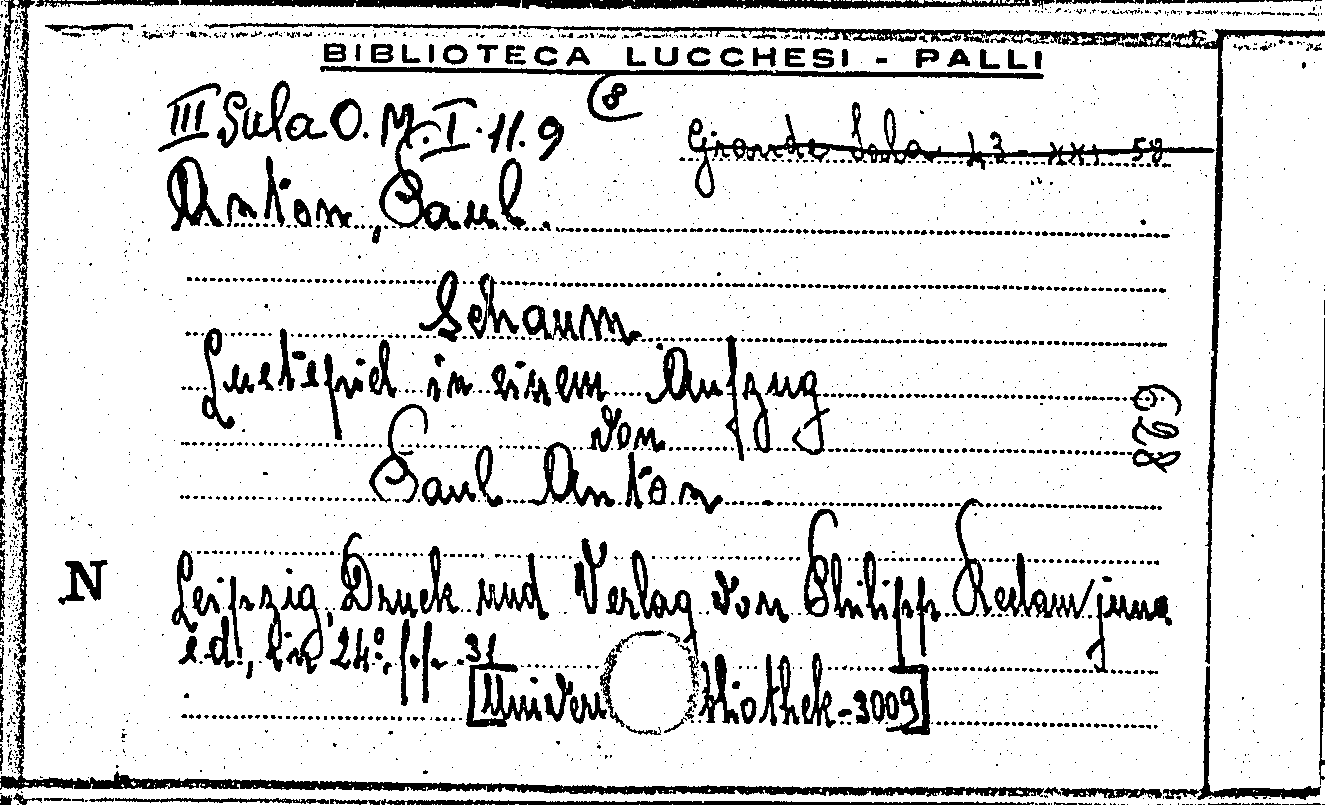 BIBLIOTECA LUCCHESI - PALLI
III Sala O. M. I. 11. 9 (8)
Grande Sala 43 - xxi 58
Anton, Paul.
Schaum
Lustspiel in einem Aufzug
von
Paul Anton
628
N
Leipzig, Druck und Verlag von Philipp Reclam jung
s.d., in 24°, p.p. 31
[Univers bliothek - 3009]